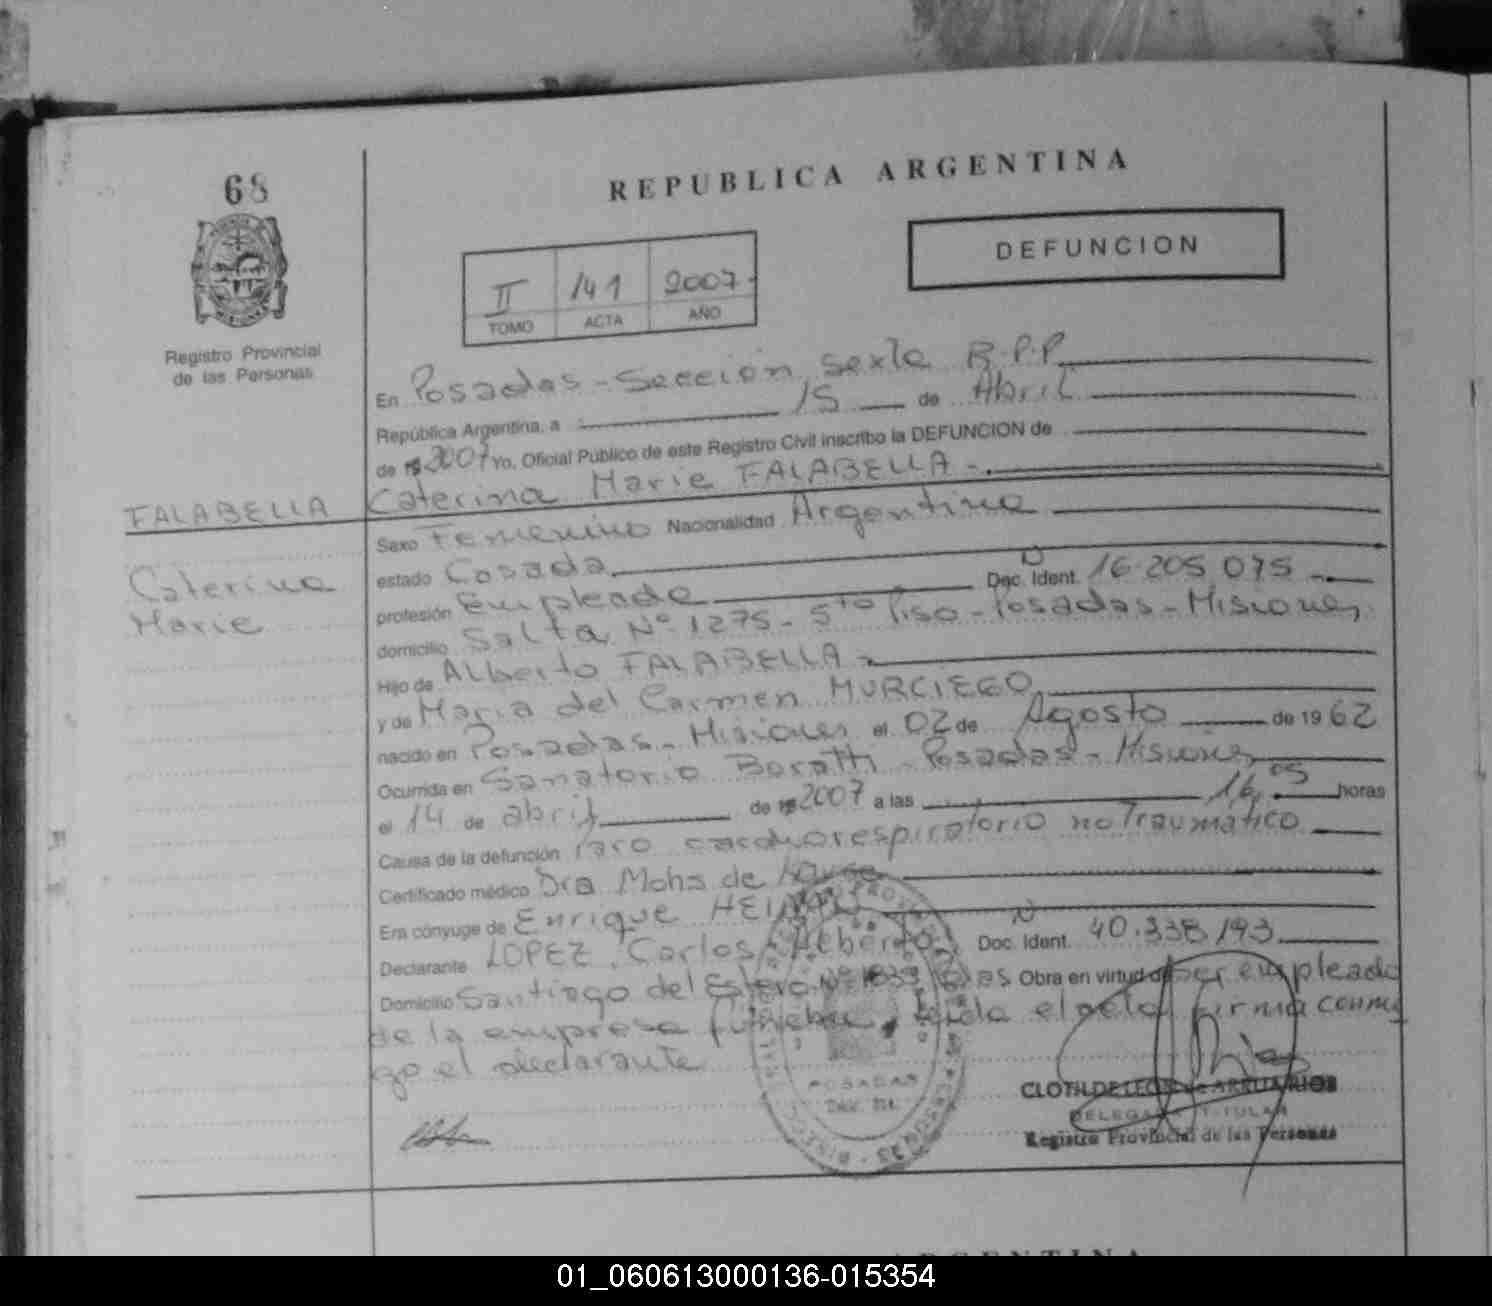 68
REPUBLICA ARGENTINA
DEFUNCION
II 141 2007
TOMO ACTA AÑO
Registro Provincial
de las Personas
En Posadas - Sección sexta R.P.P.
República Argentina, a 15 de Abril
de 19 2007 Yo, Oficial Público de este Registro Civil inscribo la DEFUNCION de
FALABELLA Caterina Maria FALABELLA -
Sexo Femenino Nacionalidad Argentina
Caterina
Maria
estado Casada Doc. Ident. N 16.205.075
profesión Empleada
domicilio Salta Nº 1275 - 5to Piso - Posadas - Misiones
Hijo de Alberto FALABELLA -
y de Maria del Carmen MURCIEGO
nacido en Posadas - Misiones el 02 de Agosto de 1962
Ocurrida en Sanatorio Boratti - Posadas - Misiones
el 14 de abril de 19 2007 a las 16,05 horas
Causa de la defunción Paro cardiorespiratorio no Traumatico
Certificado médico Dra Mohs de
Era cónyuge de Enrique
Declarante LOPEZ, Carlos Alberto Doc. Ident. N 40.338.193
Domicilio Santiago del Estero Nº Obra en virtud de ser empleado
de la empresa funebre, leida el acta firma conmi
go el declarante
POSADAS
CLOTILDE
DELEGADA TITULAR
Registro Provincial de las Personas
ARGENTINA
01_060613000136-015354